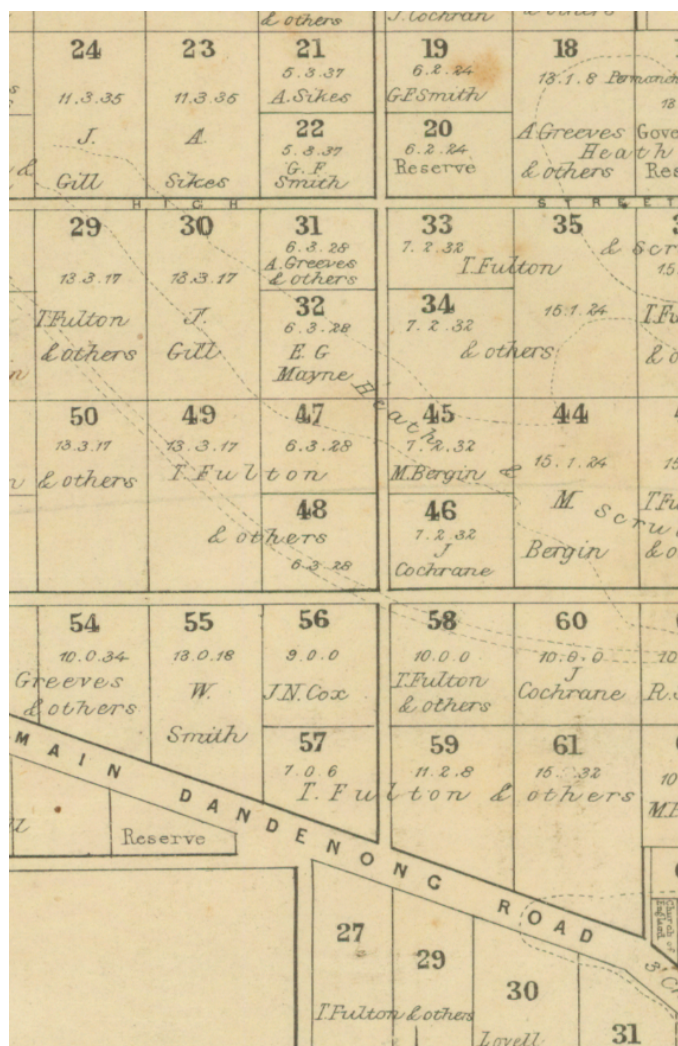 & others
J. Cochran
& others
24
11.3.35
J.
Gill
23
11.3.35
A.
Sikes
21
5.3.37
A. Sikes
22
5.3.37
G. F
Smith
19
6.2.24
G.F Smith
20
6.2.24
Reserve
18
13.1.8
A. Greeves
& others
Heath
&
HIGH STREET
29
13.3.17
T. Fulton
& others
30
13.3.17
J.
Gill
31
6.3.28
A. Greeves
& others
32
6.3.28
E. G
Mayne
33
7.2.32
T. Fulton
34
7.2.32
& others
35
15.1.24
Heath
50
13.3.17
& others
49
13.3.17
T. Fulton
47
6.3.28
48
& others
6.3.28
45
7.2.32
M. Bergin
&
46
7.2.32
J
Cochrane
44
15.1.24
M
Bergin
54
10.0.34
Greeves
& others
55
13.0.18
W.
Smith
56
9.0.0
J.N. Cox
57
7.0.6
T. Fulton & others
58
10.0.0
T. Fulton
& others
59
11.2.8
60
10.0.0
J
Cochrane
61
MAIN DANDENONG ROAD
Reserve
Church of
England
27
29
T. Fulton & others
30
Lovell
31